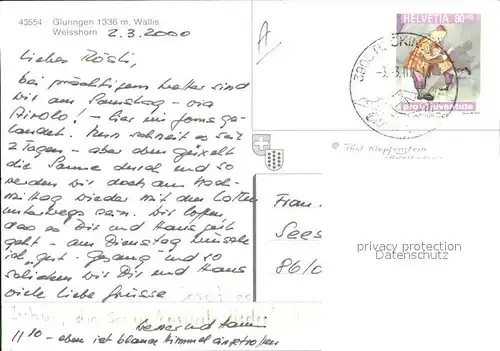 43554 Gluringen 1336 m, Wallis
Weisshorn 2.3.2000
Liebes Rösli,
bei prächtigem Wetter sind
wir am Samstag - via
Airolo! - hier im Goms ge-
landet. Nun schneit es seit
2 Tagen - aber dann
die Sonne durch und so
werden wir doch am Nach-
mittag wieder mit den Latten
unterwegs sein. Wir hoffen,
dass es Dir und Hans gut
geht - am Dienstag wünsche
ich "gut Gesang" und so
schicken wir Dir und Hans
viele liebe Grüsse
Werner und
11 10 - eben ist blauer Himmel eingetroffen
A
HELVETIA 90+40
pro juventute
3.-3.
© Photo Klopfenstein
Adelboden
Frau
Sees
86
privacy protection
Datenschutz